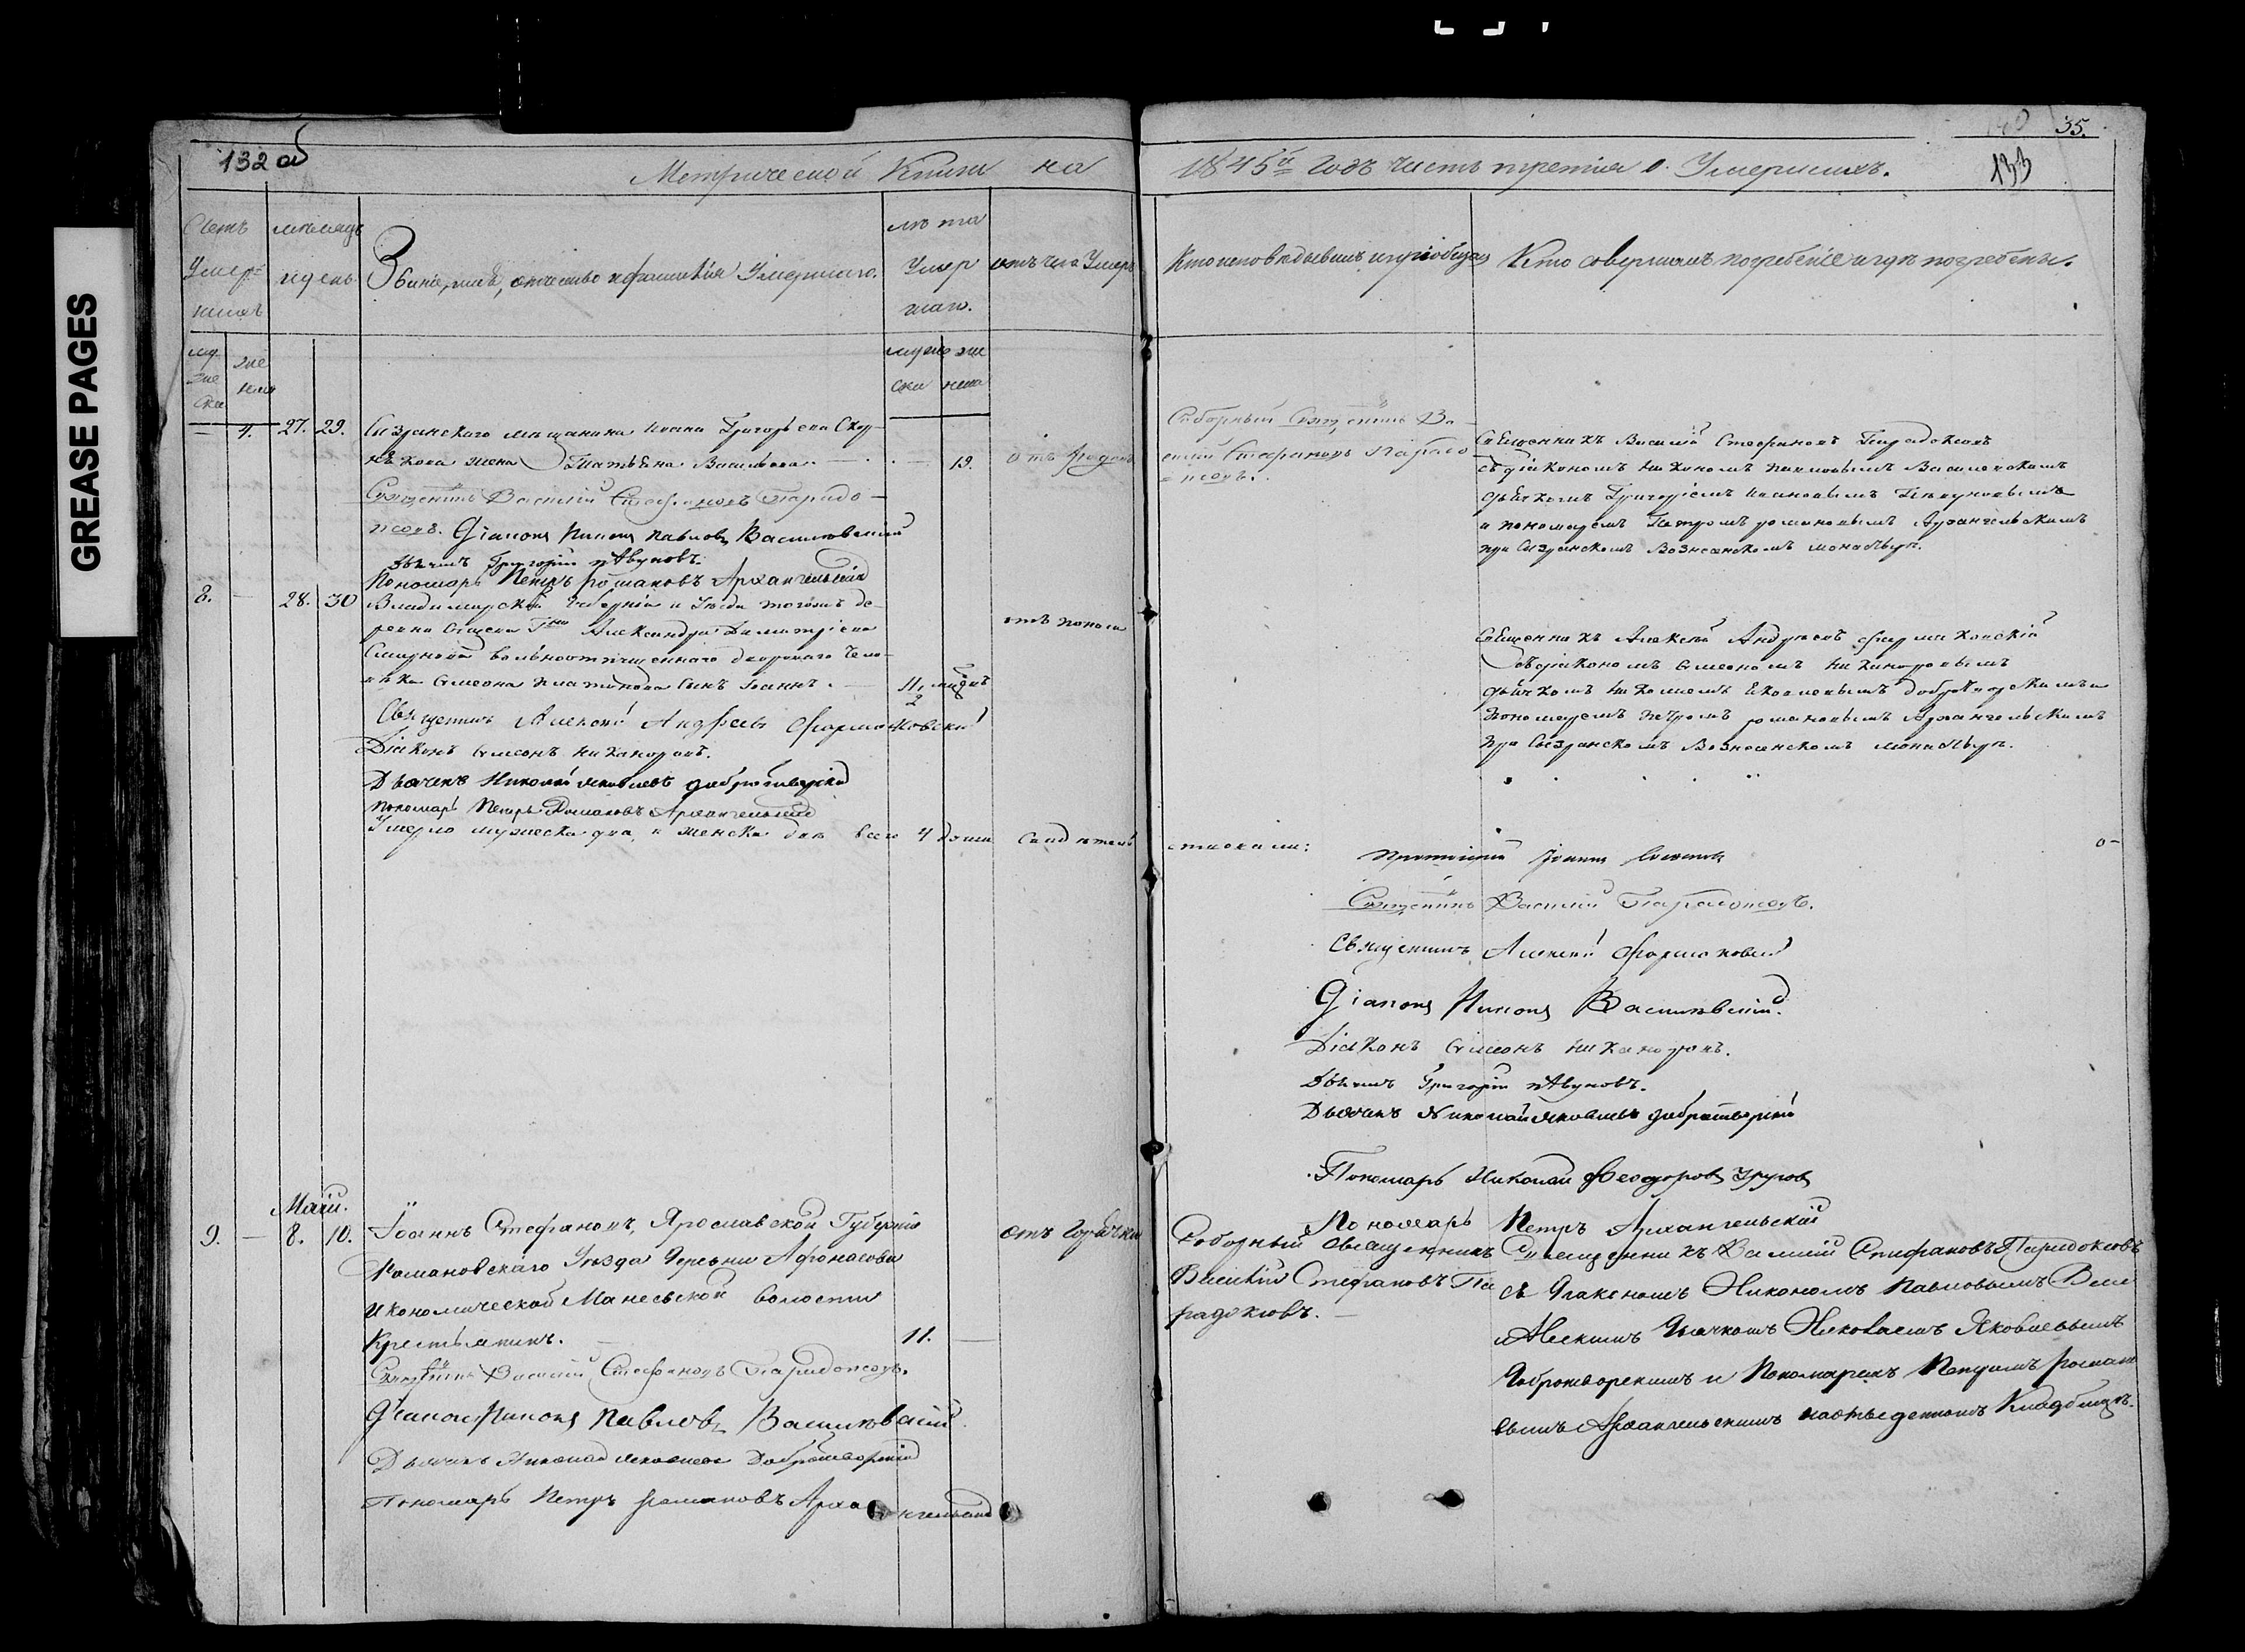 GREASE PAGES
132 об
Метрической Книги на
1845й годъ часть третія о Умершихъ.
35.
133
Счетъ Умершихъ
мѣсяцъ и день
Званіе, имя, отчество и фамилія Умершаго.
лѣта Умершаго.
отъ чего Умеръ
Кто исповѣдывалъ и пріобщалъ
Кто совершалъ погребеніе и гдѣ погребены.
муже ска
жен ска
муже ска
же нска
— 4. 27. 29. Сызранскаго мѣщанина Ивана Григорьева
жена Татьяна Васильева — 19. отъ родовъ
Священникъ Василій Стефановъ Парадо-
ксовъ. Діаконъ Никонъ Павловъ Васильевскій
Дьячекъ Григорій
Пономарь Петръ Романовъ Архангельскій
Соборный Священникъ Ва-
силій Стефановъ Парадо-
ксовъ.
Священникъ Василій Стефановъ Парадоксовъ
съ діакономъ Никономъ Павловымъ Васильевскимъ
дьячкомъ Григоріемъ Ивановымъ
и пономаремъ Петромъ Романовымъ Архангельскимъ
при Сызранскомъ Вознесенскомъ монастырѣ.
8. — 28. 30 Владимирской Губерніи и Уѣзда тогожъ де-
ревни Г-на Александра Димитріева
вольноотпущеннаго двороваго чело-
вѣка Симеона сынъ Іоаннъ. — отъ поноса
Священникъ Алексій Андреевъ Фармаковскій
Діаконъ Симеонъ Никаноровъ.
Дьячекъ Николай Яковлевъ Добротворскій
Пономарь Петръ Романовъ Архангельскій
Священникъ Алексѣй Андреевъ Фармаковскій
съ діакономъ Симеономъ Никаноровымъ
дьячкомъ Николаемъ Яковлевымъ Добротворскимъ и
пономаремъ Петромъ Романовымъ Архангельскимъ
при Сызранскомъ Вознесенскомъ монастырѣ.
Умерло мужеска два, и женска два всего 4 души
Протоіерей Іоаннъ
Священникъ Василій Парадоксовъ.
Священникъ Алексій Фармаковскій
Діаконъ Никонъ Васильевскій.
Діаконъ Симеонъ Никаноровъ.
Дьячекъ Григорій
Дьячекъ Николай Яковлевъ Добротворскій
Пономарь Николай Феодоровъ
Пономарь Петръ Архангельскій
Маій.
9. — 8. 10. Іоаннъ Стефановъ, Ярославской Губерніи
Романовскаго Уѣзда Деревни Афонасова
Икономической волости
Крестьянинъ. — 11. — отъ горячки
Священникъ Василій Стефановъ Парадоксовъ.
Діаконъ Никонъ Павловъ Васильевскій.
Дьячекъ Николай Яковлевъ Добротворскій
Пономарь Петръ Романовъ Архангельскій
Соборный Священникъ
Василій Стефановъ Па
радоксовъ. —
Священникъ Василій Стефановъ Парадоксовъ
съ Діакономъ Никономъ Павловымъ Васи
левскимъ Дьячкомъ Николаемъ Яковлевымъ
Добротворскимъ и Пономаремъ Петромъ Роман
вымъ Архангельскимъ на отведенномъ Кладбищѣ.